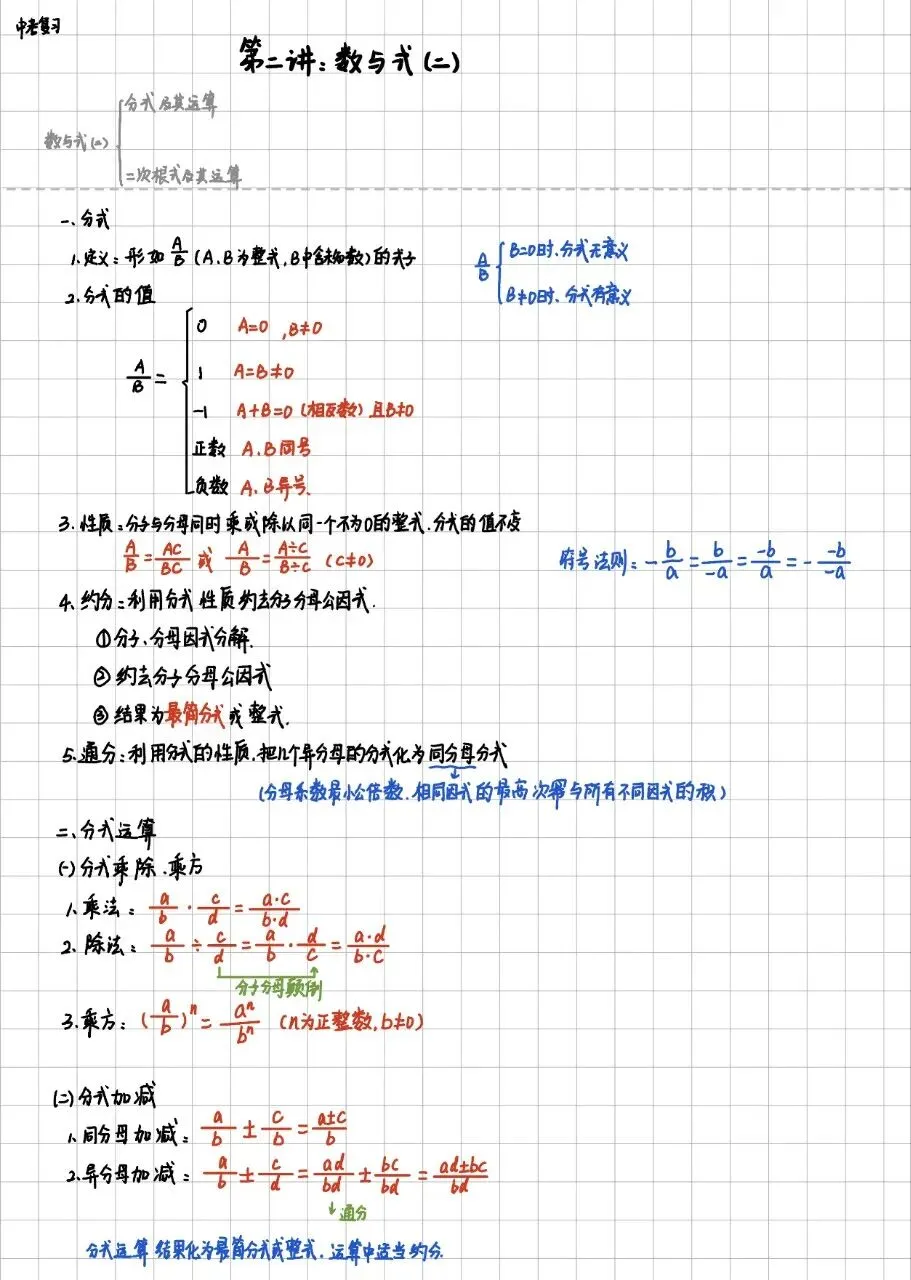 中考复习
第二讲：数与式(二)
数与式(二) { 分式及其运算
二次根式及其运算
一、分式
1、定义：形如 A/B (A、B为整式，B中含未知数)的式子
A/B { B=0时、分式无意义
B≠0时、分式有意义
2、分式的值
A/B = { 0 A=0 ，B≠0
1 A=B≠0
-1 A+B=0 (相反数) 且B≠0
正数 A、B同号
负数 A、B异号、
3、性质：分子与分母同时乘或除以同一个不为0的整式、分式的值不变
A/B = AC/BC 或 A/B = A÷C/B÷C (C≠0)
符号法则：-b/a = b/-a = -b/a = - -b/-a
4、约分：利用分式性质约去分子分母公因式．
①分子、分母因式分解．
②约去分子分母公因式
③结果为最简分式或整式．
5、通分：利用分式的性质、把几个异分母的分式化为同分母分式
(分母系数最小公倍数、相同因式的最高次幂与所有不同因式的积)
二、分式运算
(一)分式乘除、乘方
1、乘法：a/b · c/d = a·c/b·d
2、除法：a/b ÷ c/d = a/b · d/c = a·d/b·c
分子分母颠倒
3、乘方：(a/b)ⁿ = aⁿ/bⁿ (n为正整数，b≠0)
(二)分式加减
1、同分母加减：a/b ± c/b = a±c/b
2、异分母加减：a/b ± c/d = ad/bd ± bc/bd = ad±bc/bd
↓通分
分式运算结果化为最简分式或整式、运算中适当约分．